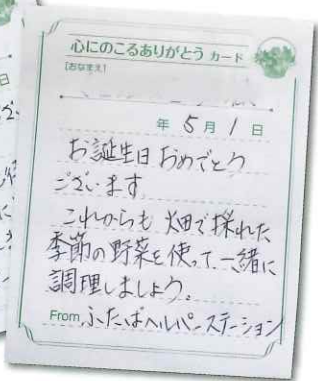 心にのこるありがとう カード
[おなまえ]
年 5月 1日
お誕生日おめでとう
ございます。
これからも 畑で採れた
季節の野菜を使って一緒に
調理しましょう。
From ふたばヘルパーステーション
日